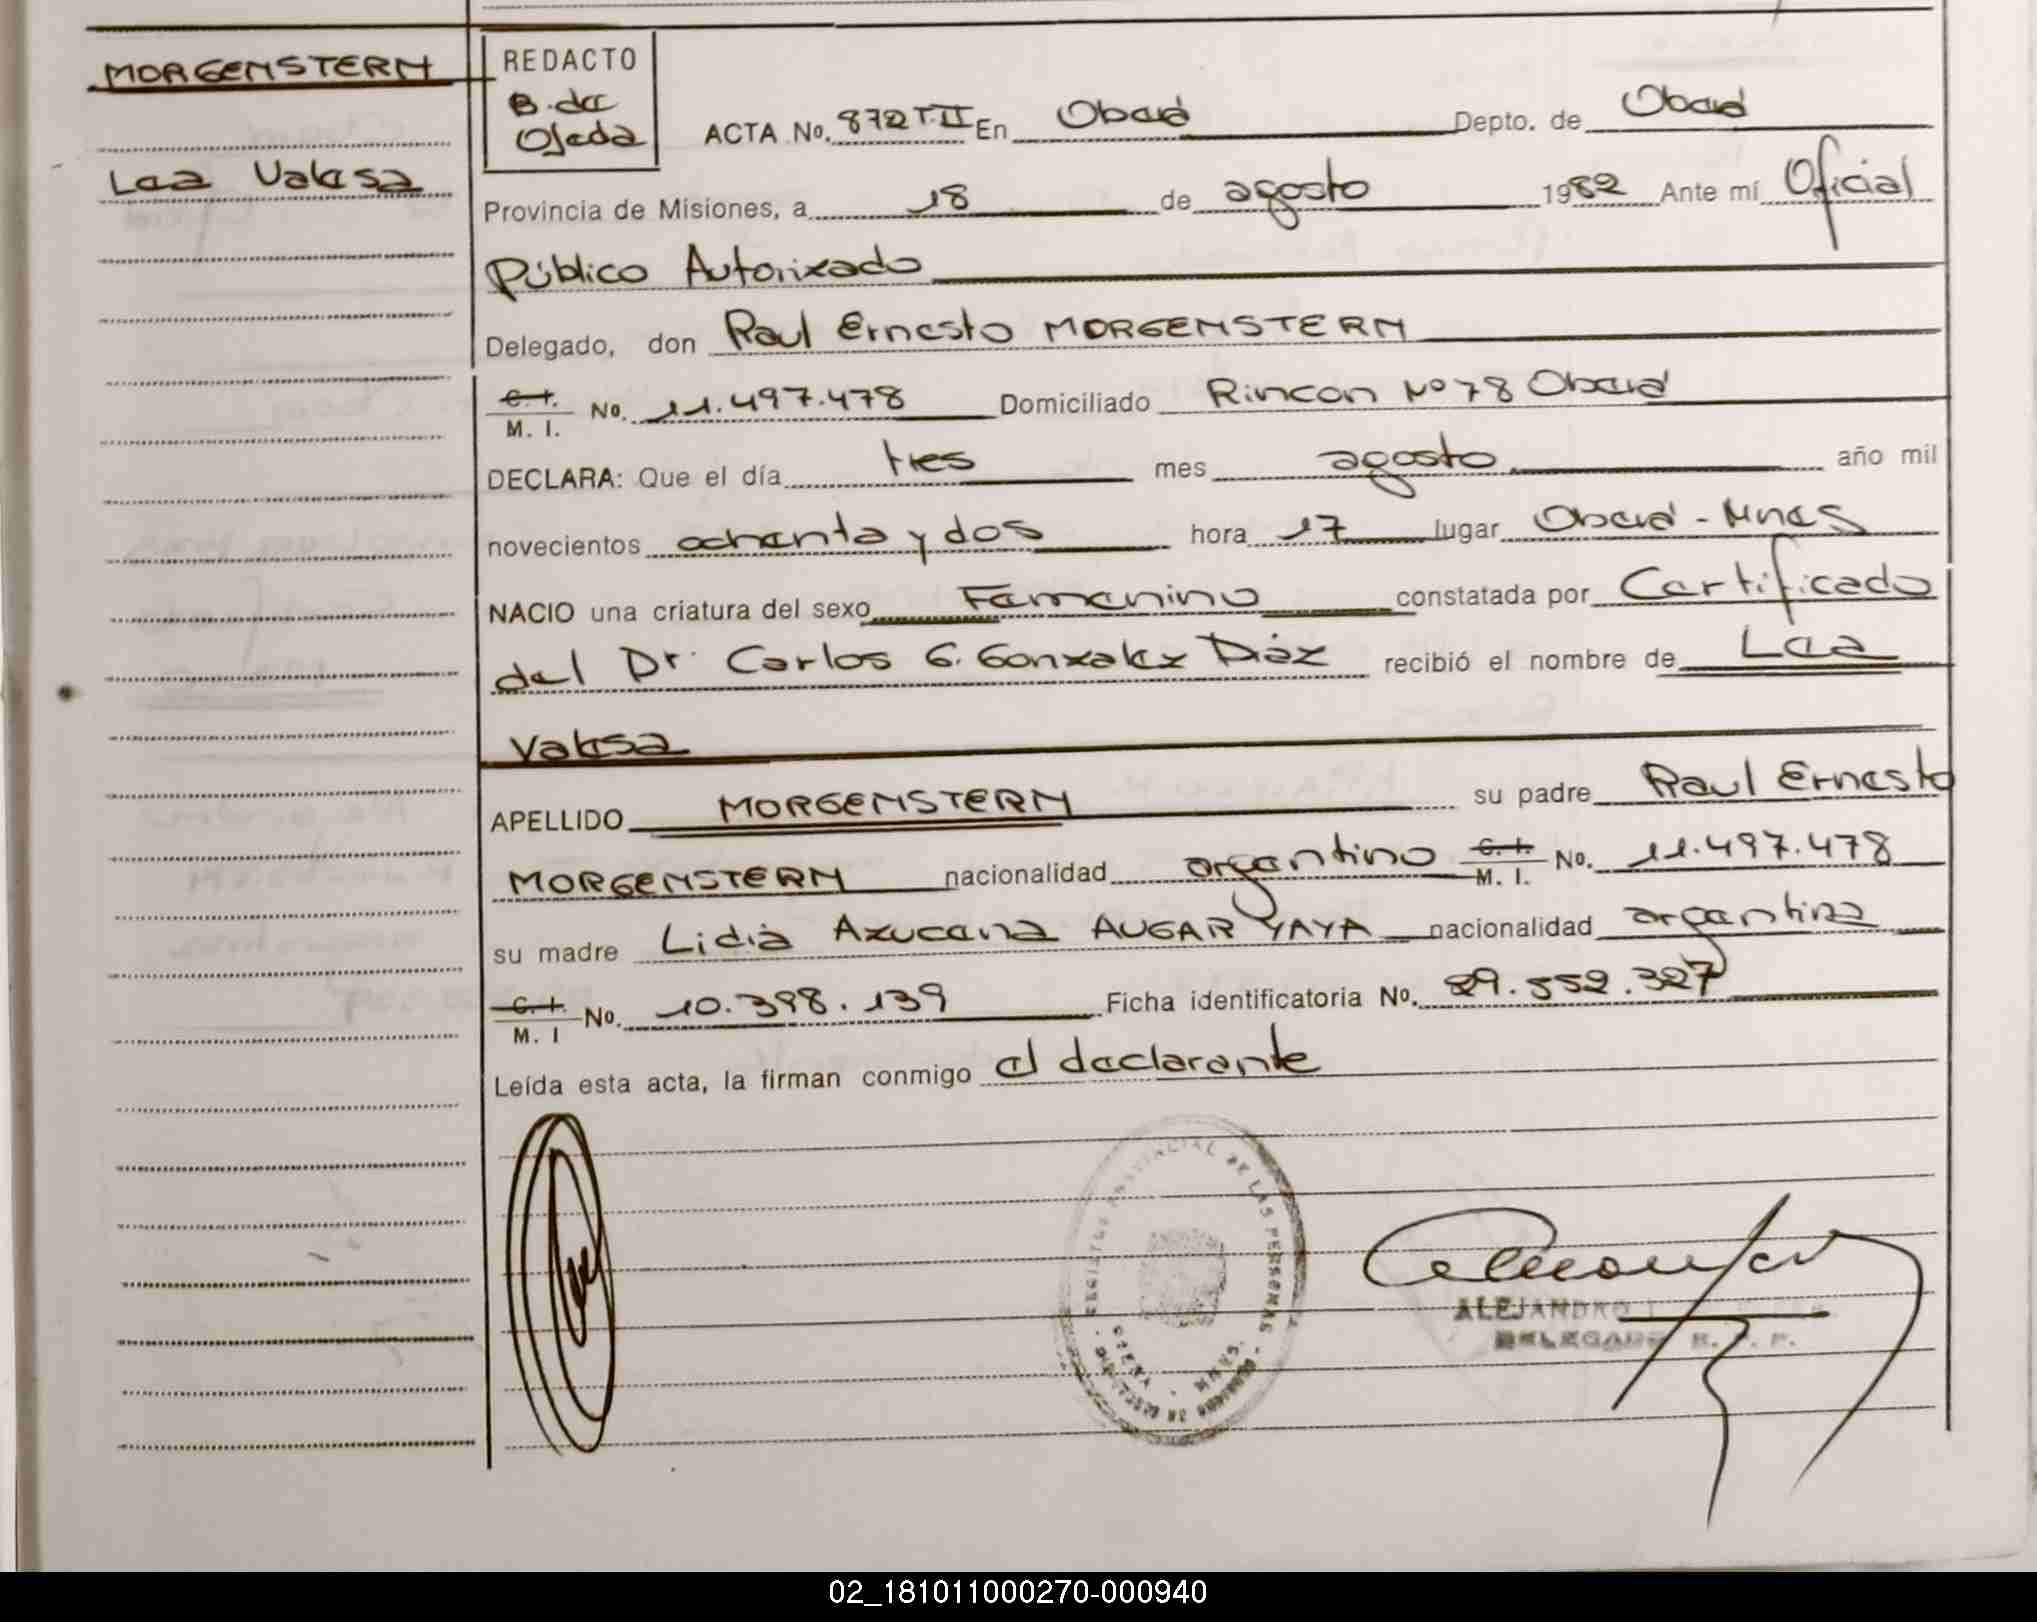 MORGENSTERN
Lea Valesa
REDACTO
B. de
Ojeda
ACTA No. 872 T.II En Oberá Depto. de Oberá
Provincia de Misiones, a 18 de agosto 1982 Ante mí Oficial
Público Autorizado
Delegado, don Raul Ernesto MORGENSTERN
C. I. / M. I. No. 11.497.478 Domiciliado Rincon Nº 78 Oberá
DECLARA: Que el día tres mes agosto año mil
novecientos ochenta y dos hora 17 lugar Oberá - Mnes
NACIO una criatura del sexo Femenino constatada por Certificado
del Dr. Carlos G. Gonzalez Diáz recibió el nombre de Lea
Valesa
APELLIDO MORGENSTERN su padre Raul Ernesto
MORGENSTERN nacionalidad argentino C. I. / M. I. No. 11.497.478
su madre Lidia Azucena AUGAR YAYA nacionalidad argentina
C. I. / M. I No. 10.398.139 Ficha identificatoria No. 29.552.327
Leída esta acta, la firman conmigo el declarante
REGISTRO PROVINCIAL DE LAS PERSONAS
OBERA - MNES.
ALEJANDRO
DELEGADO R. P. P.
02_181011000270-000940